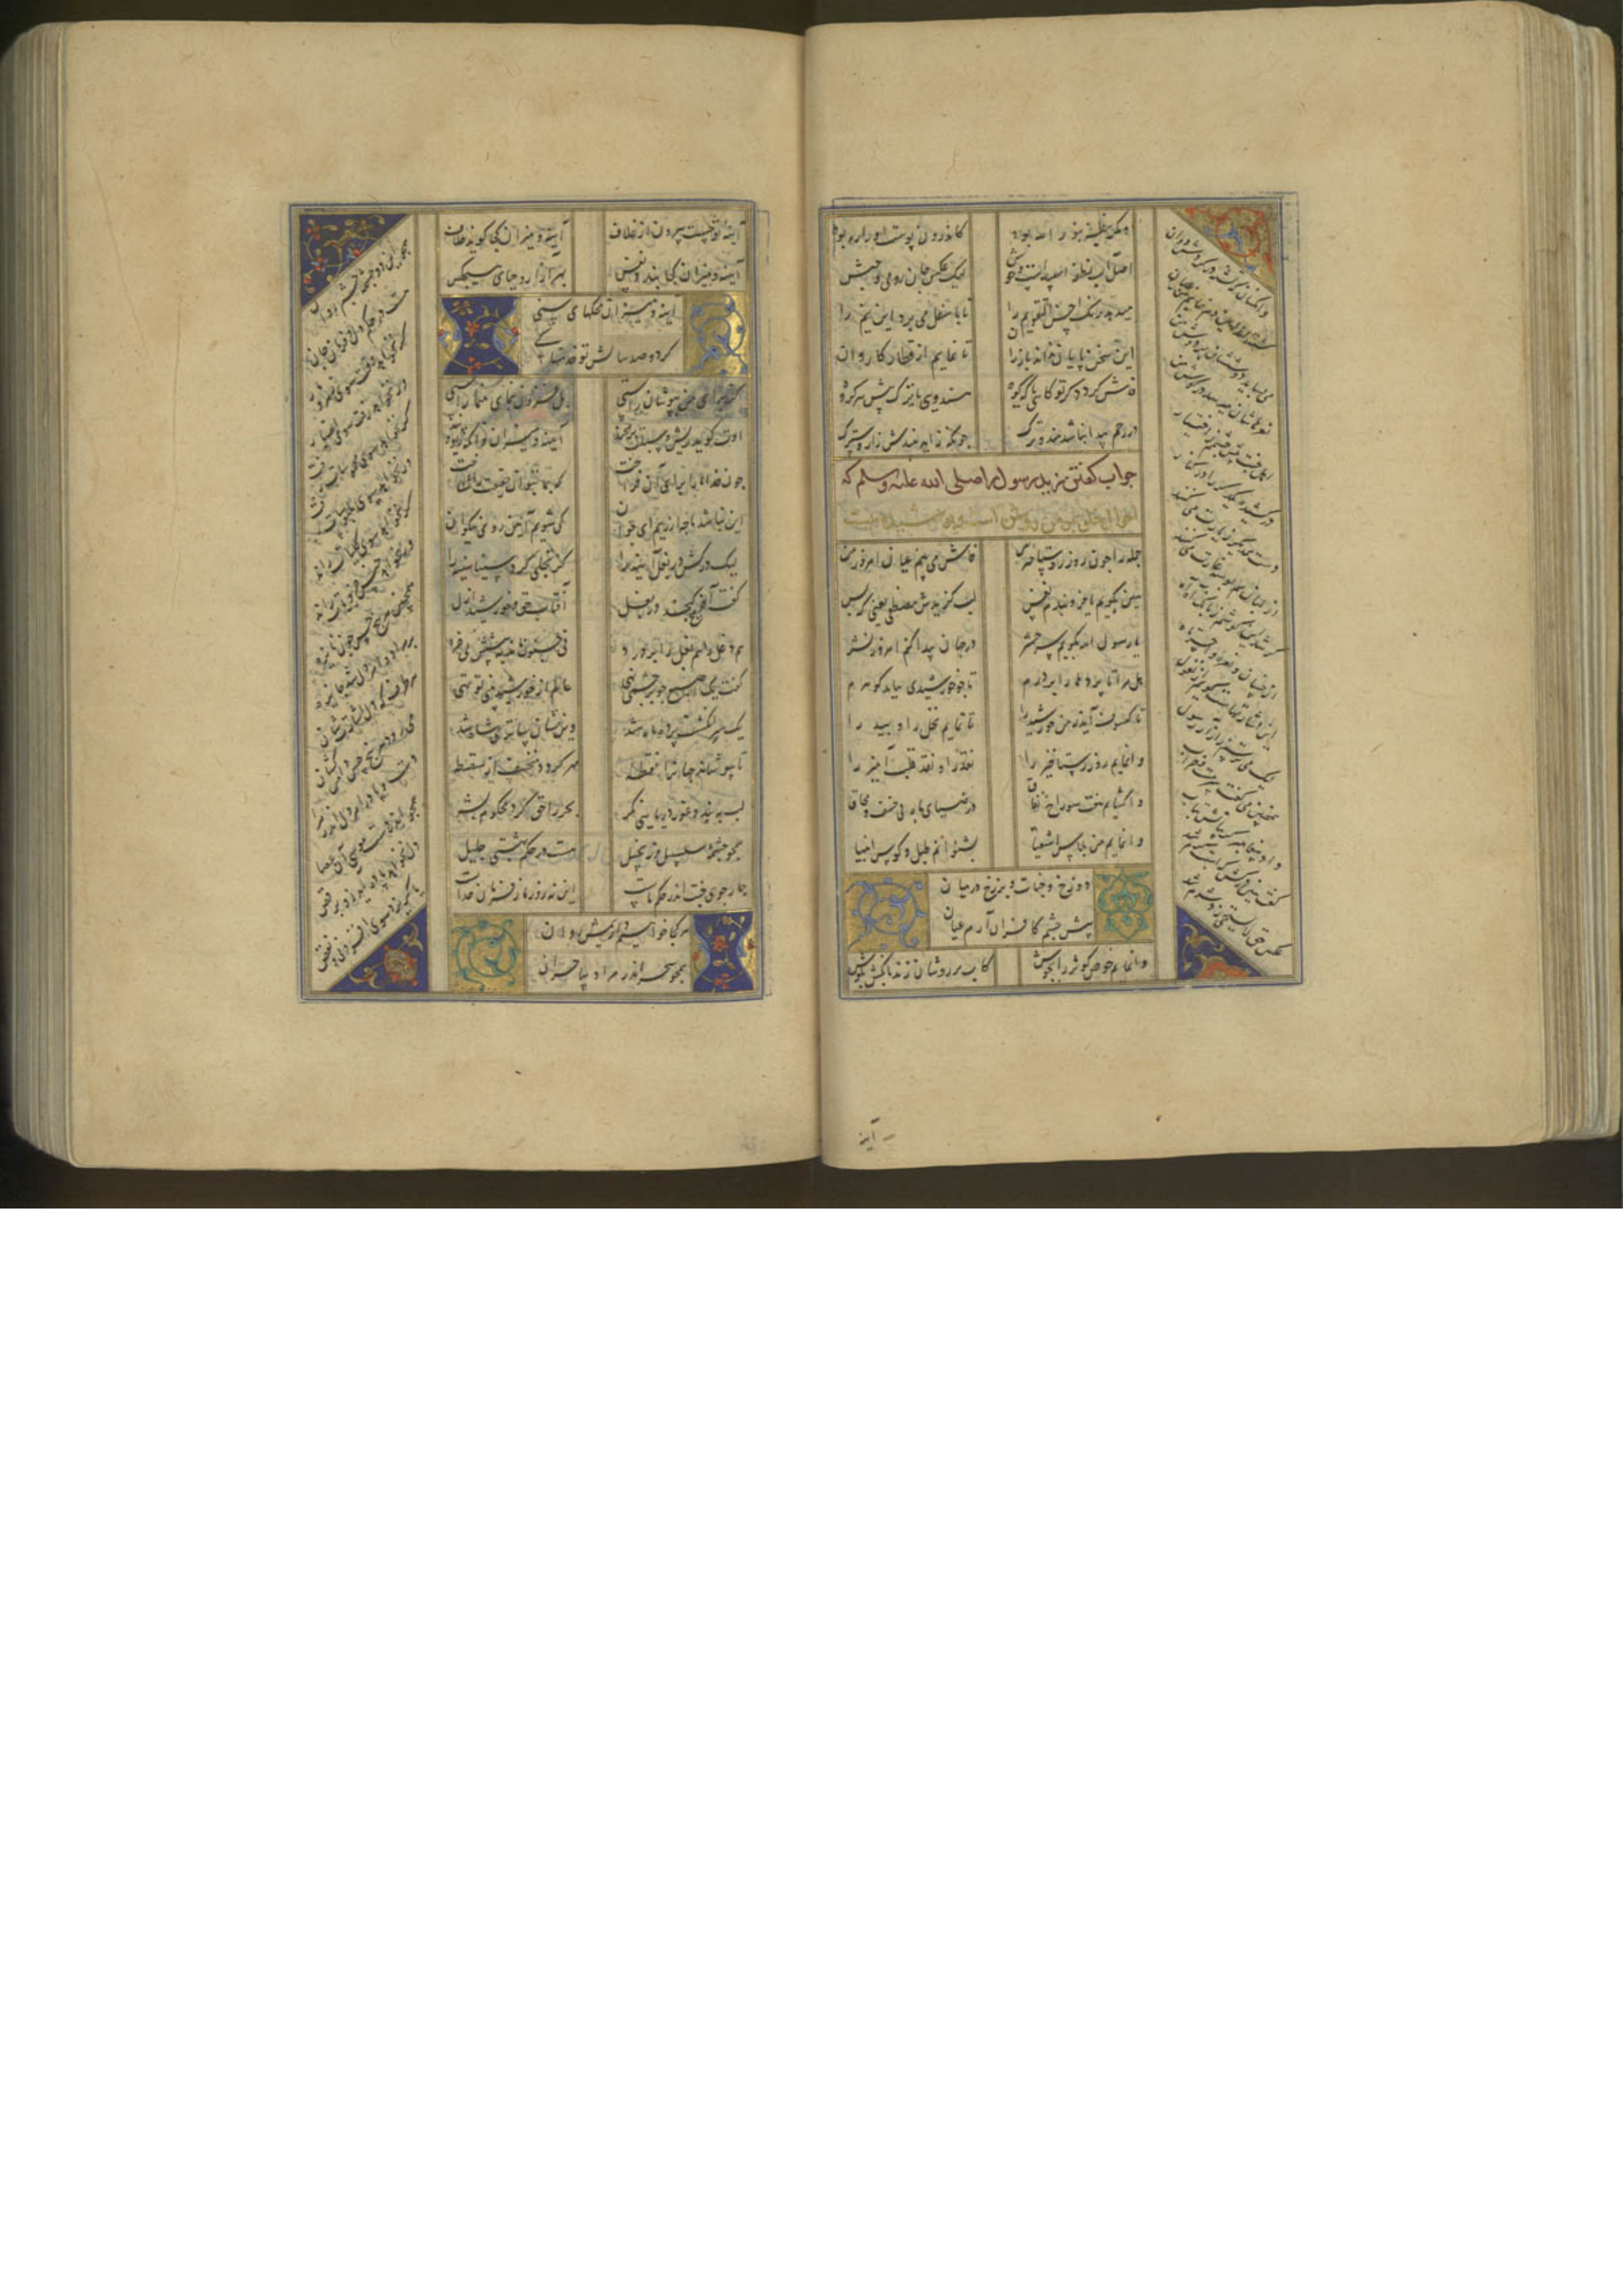 کاندرون پوست او را ره بود
اصل آب نطفه اسپیدست و خوش لیک عکس جان رومی و حبش
میدهد رنگ احسن التقویم را تا باسفل می برد این نیم را
این سخن پایان ندارد باز ران تا نمانیم از قطار کاروان
فاش گردد که تو کاهی یا که کوه هندوی یا ترک پیش هر گروه
در رحم پیدا نباشد هند و ترک چونکه زاید بیندش زار و سترک
جواب کفتن زید رسول را صلی الله علیه وسلم که
احوال خلق بر من روش است و پوشیده نیست
جمله را چون روز رستاخیز من فاش می بینم عیان از مرد و زن
هین بکویم یا فرو بندم نفس لب کزیدش مصطفی یعنی که بس
یا رسول الله بکویم سر حشر در جهان پیدا کنم امروز نشر
هل مرا تا پرده ها را بر درم تا چو خورشیدی بتابد کوهرم
تا کسوف آید ز من خورشید را تا نمایم نخل را و بید را
وا نمایم روز رستاخیز را نقد را و نقد قلب آمیز را
وا کشایم هفت سوراخ نفاق در ضیای ماه بی خسف و محاق
وا نمایم من پلاس اشقیا بشنوانم طبل و کوس انبیا
دوزخ و جنات و برزخ در میان
پیش چشم کافران آرم عیان
وا نمایم حوض کوثر را بجوش کاب بر روشان زند بانکش بکوش
وانکسان که تشنه بر کردش دوان
می بساید دوششان بر دوش من
نعرهاشان میرسد در کوش من
اهل جنت پیش چشمم ز اختیار
در کشیده یکدیکر را در کنار
دست یکدیکر زیارت می کنند
از لبان هم بوسه غارت می کنند
کر شد این کوشم ز بانک آه آه
این اشارتهاست کویم از نغول
لیک می ترسم ز آزار رسول
همچنین می کفت سرمست و خراب
داد پیغامبر کریبانش بتاب
کفت هین در کش که اسبت کرم شد
عکس حق لا یستحی زد شرم شد
آینه
آینه تو جست بیرون از غلاف آینه و میزان کجا کوید خلاف
آینه و میزان کجا بندد نفس بهر آزار و حیای هیچکس
آینه و میزان محکهای سنی
کر دو صد سالش تو خدمتها کنی
کز برای من بپوشان راستی بل فزون بنمای و منما کاستی
اوت کوید ریش و سبلت بر مخند آینه و میزان و آنکه ریو و پند
چون خدا ما را برای آن فراخت که بما بتوان حقیقت را شناخت
این نباشد ما چه ارزیم ای جوان کی شویم آیین روی نیکوان
لیک در کش در بغل آیینه را کز تجلی کرد سینا سینه را
کفت آخر هیچ کنجد در بغل آفتاب حق و خورشید ازل
هم دغل را هم بغل را بر درد نی جنون ماند به پیشش نی خرد
کفت یک اصبع چو بر چشمی نهی عالم از خورشید بینی تو تهی
یک سر انکشت پرده ماه شد وین نشان ساتری شاه شد
تا بپوشاند جهان را نقطه مهر کردد منخسف از سقطه
لب ببند و غور دریایی نکر بحر را حق کرد محکوم بشر
همچو چشمه سلسبیل و زنجبیل هست در حکم بهشتی جلیل
چار جوی جنت اندر حکم ماست این نه زور ما ز فرمان خداست
هر کجا خواهیم داریمش روان
همچو سحر اندر مراد ساحران
همچو این دو چشمه چشم روان
هست در حکم دل و فرمان جان
کر بخواهد رفت سوی زهر و مار
ور بخواهد رفت سوی اعتبار
کر بخواهد سوی محسوسات رفت
ور بخواهد سوی ملبوسات رفت
کر بخواهد سوی کلیات راند
ور بخواهد حبس جزویات ماند
همچنین هر پنج حس چون نایزه
بر مراد و امر دل شد جایزه
هر طرف که دل اشارت کردشان
می رود هر پنج حس دامن کشان
دست و پا در امر دل اندر ملا
همچو اندر دست موسی آن عصا
دل بخواهد پا در آید زو برقص
یا کریزد سوی افزونی ز نقص